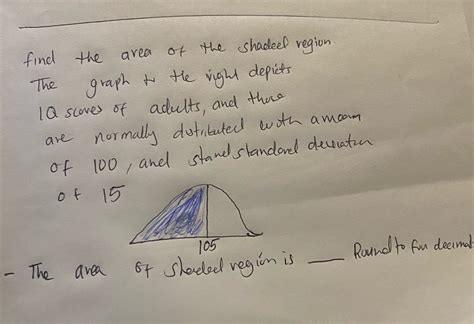 find the area of the shaded region.
The graph to the right depicts
IQ scores of adults, and those
are normally distributed with a mean
of 100, and stand standard deviation
of 15
105
- The area of shaded region is ___ Round to four decimal